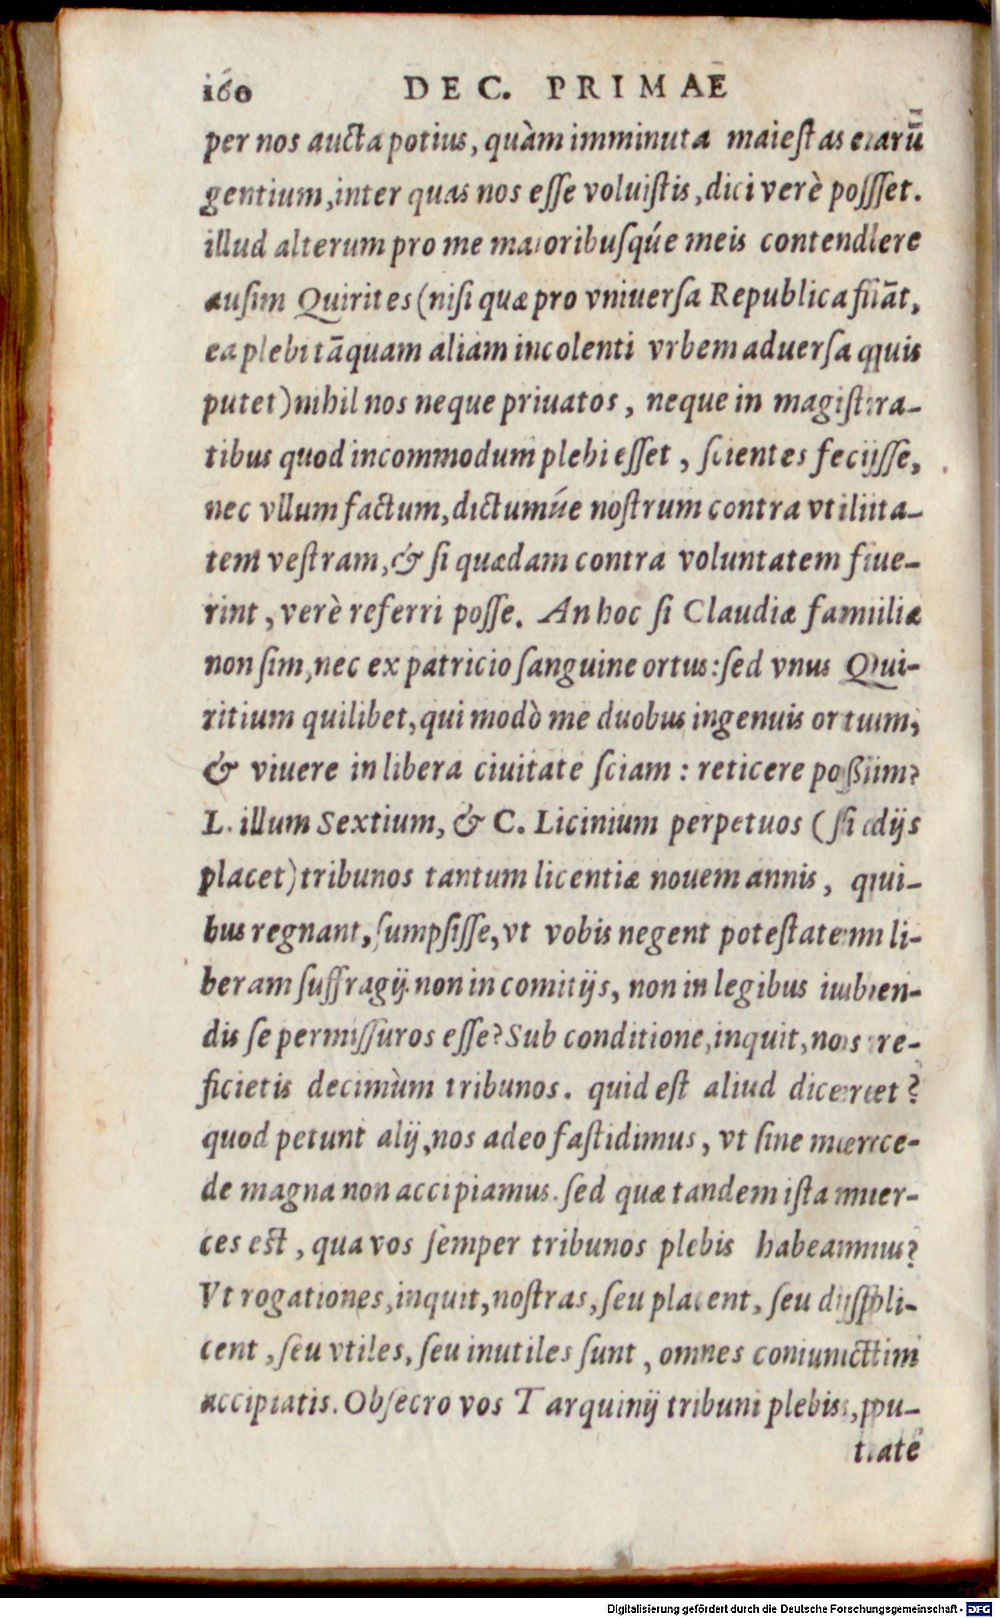 160 DEC. PRIMAE
per nos aucta potius, quàm imminuta maiestas earū
gentium, inter quas nos esse voluistis, dici verè posset.
illud alterum pro me maioribusq́ue meis contendere
ausim Quirites (nisi quæ pro vniuersa Republica fiāt,
ea plebi tāquam aliam incolenti vrbem aduersa quis
putet) nihil nos neque priuatos, neque in magistra-
tibus quod incommodum plebi esset, scientes fecisse,
nec vllum factum, dictumúe nostrum contra vtilita-
tem vestram, & si quædam contra voluntatem fue-
rint, verè referri posse. An hoc si Claudiæ familiæ
non sim, nec ex patricio sanguine ortus: sed vnus Qui-
ritium quilibet, qui modò me duobus ingenuis ortum,
& viuere in libera ciuitate sciam: reticere possim?
L. illum Sextium, & C. Licinium perpetuos (si dijs
placet) tribunos tantum licentiæ nouem annis, qui-
bus regnant, sumpsisse, vt vobis negent potestatem li-
beram suffragij. non in comitijs, non in legibus iuben-
dis se permissuros esse? Sub conditione, inquit, nos re-
ficietis decimùm tribunos. quid est aliud diceret?
quod petunt alij, nos adeo fastidimus, vt sine merce-
de magna non accipiamus. sed quæ tandem ista mer-
ces est, qua vos semper tribunos plebis habeamus?
Vt rogationes, inquit, nostras, seu placent, seu displi-
cent, seu vtiles, seu inutiles sunt, omnes coniunctim
accipiatis. Obsecro vos Tarquinij tribuni plebis, pu-
tate
Digitalisierung gefördert durch die Deutsche Forschungsgemeinschaft - DFG